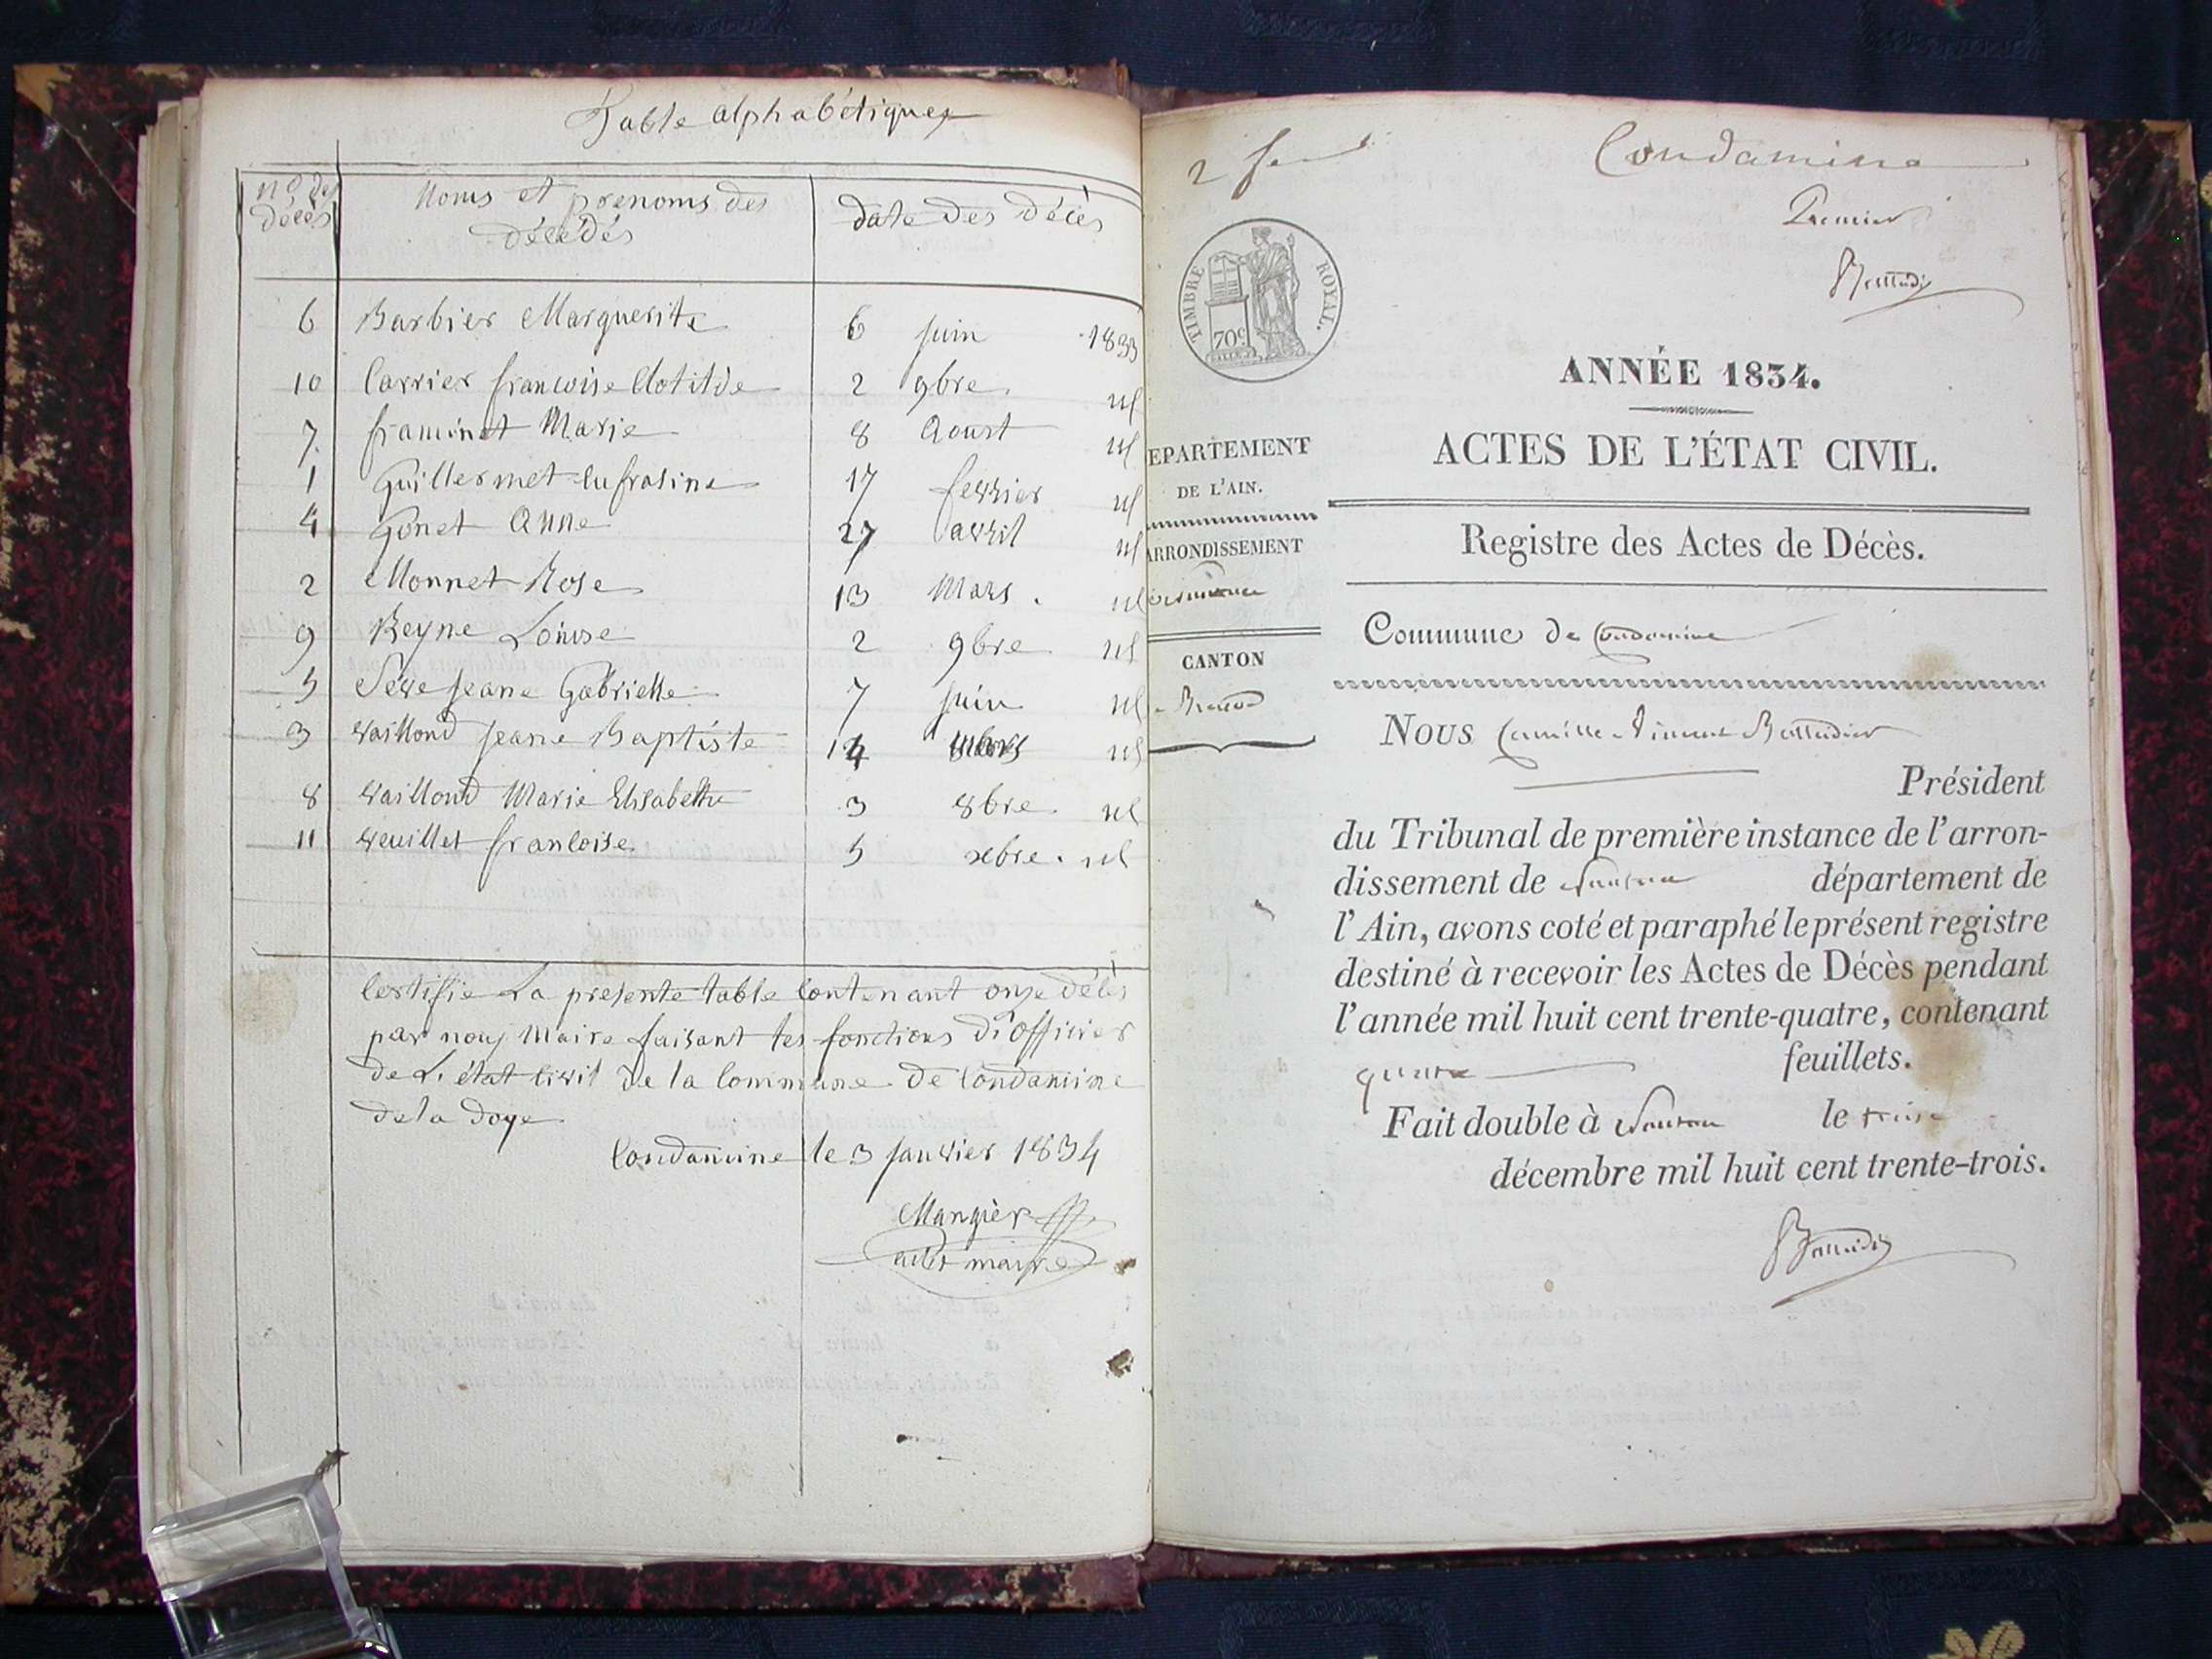 Table alphabétique
n° des décès
Noms et prenoms des décédés
date des décès
6 Barbier Marguerite 6 juin 1833
10 Carrier francoise Clotilde 2 9bre. id
7 framinet Marie 8 Aoust id
1 Guillermet Eufrasine 17 fevrier id
4 Gonet Anne 27 avril id
2 Monnet Rose 13 Mars. id
9 Reyne Louise 2 9bre id
5 Séve Jeane Gabrielle 7 juin id
3 Vaillond Jeane Baptiste 14 Mars id
8 Vaillond Marie Elisabethe 3 8bre id
11 Veuillet francoise 5 xbre. id
Certifie La presente table Contenant onze décès
par nous Maire faisant les fonctions d'officier
de L'état Civil de la Commune de Condamine
de la doye
Condamine le 3 janvier 1834
Mangier
maire
2
Condamine
Premier
TIMBRE ROYAL.
70c
ANNÉE 1834.
EPARTEMENT
DE L'AIN.
ARRONDISSEMENT
CANTON
ACTES DE L'ÉTAT CIVIL.
Registre des Actes de Décès.
Commune de Condamine
NOUS Camille Vincent
Président
du Tribunal de première instance de l'arron-
dissement de Nantua département de
l'Ain, avons coté et paraphé le présent registre
destiné à recevoir les Actes de Décès pendant
l'année mil huit cent trente-quatre, contenant
quatre feuillets.
Fait double à Nantua le treize
décembre mil huit cent trente-trois.